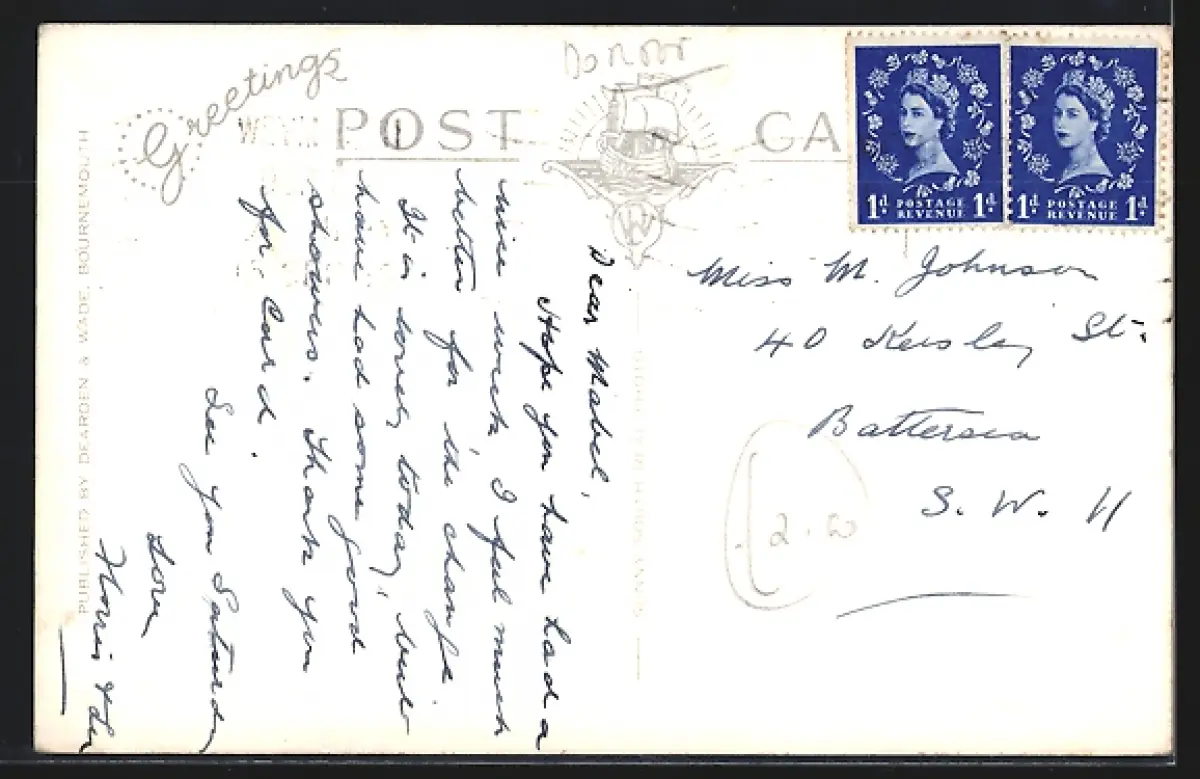 Greetings
POST CA
1d. POSTAGE REVENUE 1d.
1d. POSTAGE REVENUE 1d.
PUBLISHED BY DEARDEN & WADE, BOURNEMOUTH
Dear Mabel,
Hope you have had a
nice week, I feel much
better for the change.
It is lovely today, but
have had some good
showers. Thank you
for card.
See you Saturday
Love
Miss M. Johnson
40 Kersley St.
Battersea
S. W. 11
2.00